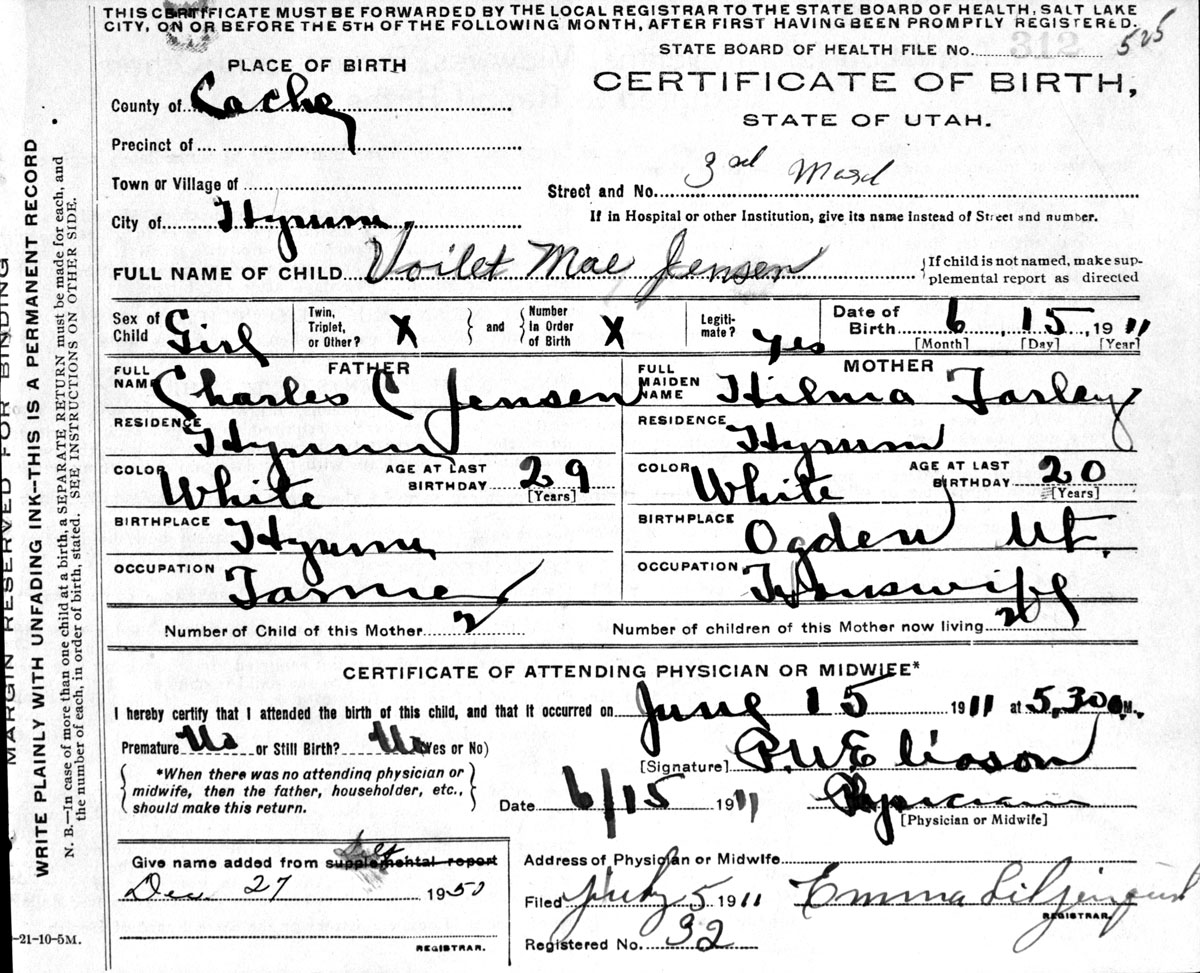 THIS CERTIFICATE MUST BE FORWARDED BY THE LOCAL REGISTRAR TO THE STATE BOARD OF HEALTH, SALT LAKE
CITY, ON OR BEFORE THE 5TH OF THE FOLLOWING MONTH, AFTER FIRST HAVING BEEN PROMPTLY REGISTERED.
STATE BOARD OF HEALTH FILE No. 525
PLACE OF BIRTH
CERTIFICATE OF BIRTH,
STATE OF UTAH.
County of Cache
Precinct of
Town or Village of
Street and No. 3rd Ward
City of Hyrum.
If in Hospital or other Institution, give its name instead of Street and number.
FULL NAME OF CHILD Voilet Mae Jensen
{If child is not named, make sup-
plemental report as directed
Sex of Child Girl
Twin, Triplet, or Other? X } and { Number In Order of Birth X
Legiti-mate? yes
Date of Birth 6, 15, 1911
[Month] [Day] [Year]
FATHER
FULL NAME Charles C Jensen
RESIDENCE Hyrum
COLOR White AGE AT LAST BIRTHDAY 29
[Years]
BIRTHPLACE Hyrum
OCCUPATION Farmer
MOTHER
FULL MAIDEN NAME Hilma Farley
RESIDENCE Hyrum
COLOR White AGE AT LAST BIRTHDAY 20
[Years]
BIRTHPLACE Ogden Ut.
OCCUPATION Houswife
Number of Child of this Mother 2
Number of children of this Mother now living 2
CERTIFICATE OF ATTENDING PHYSICIAN OR MIDWIEE*
I hereby certify that I attended the birth of this child, and that it occurred on June 15 1911 at 5,30 M.
Premature No or Still Birth? No (Yes or No)
[Signature] P.W Eliason
{ *When there was no attending physician or
midwife, then the father, householder, etc.,
should make this return. }
Date 6/15 1911 Physician
[Physician or Midwife]
Give name added from supplemental report
Dec. 27 1950
REGISTRAR.
Address of Physician or Midwife
Filed July 5 1911 Emma Liljenquist
REGISTRAR.
Registered No. 32
-21-10-5M.
MARGIN RESERVED FOR BINDING
WRITE PLAINLY WITH UNFADING INK—THIS IS A PERMANENT RECORD
N. B.—In case of more than one child at a birth, a SEPARATE RETURN must be made for each, and
the number of each, in order of birth, stated. SEE INSTRUCTIONS ON OTHER SIDE.